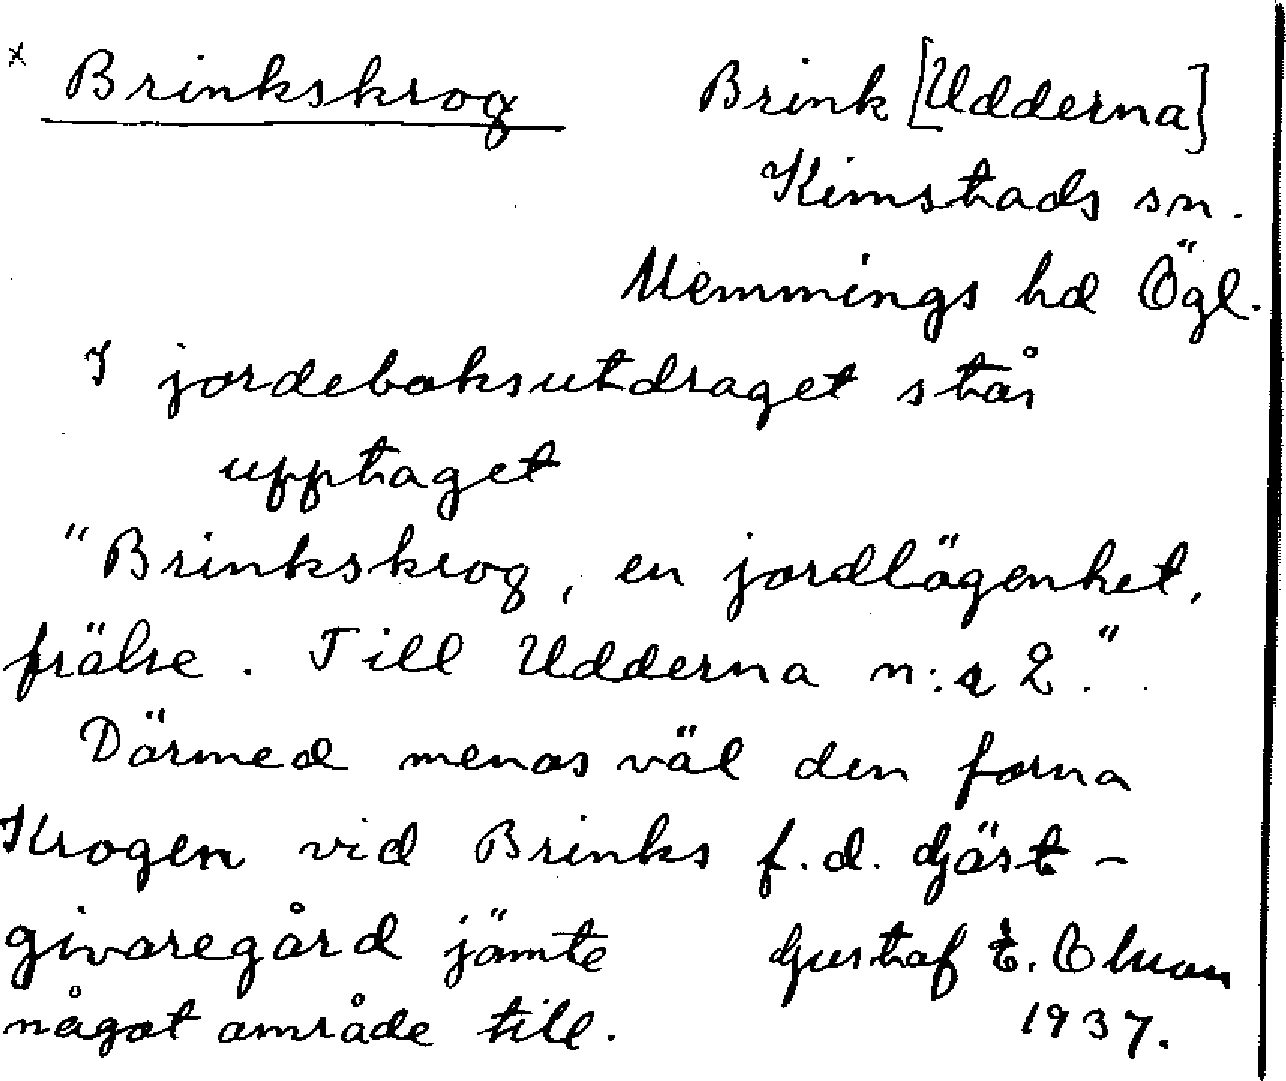 x Brinkskrog Brink [Udderna]
Kimstads sn.
Memmings hd Ögl.
I jordeboksutdraget står
upptaget
"Brinkskrog, en jordlägenhet,
frälse. Till Udderna n:r 2."
Därmed menas väl den forna
Krogen vid Brinks f.d. gjäst-
givaregård jämte
något område till.
Gustaf E.
1937.